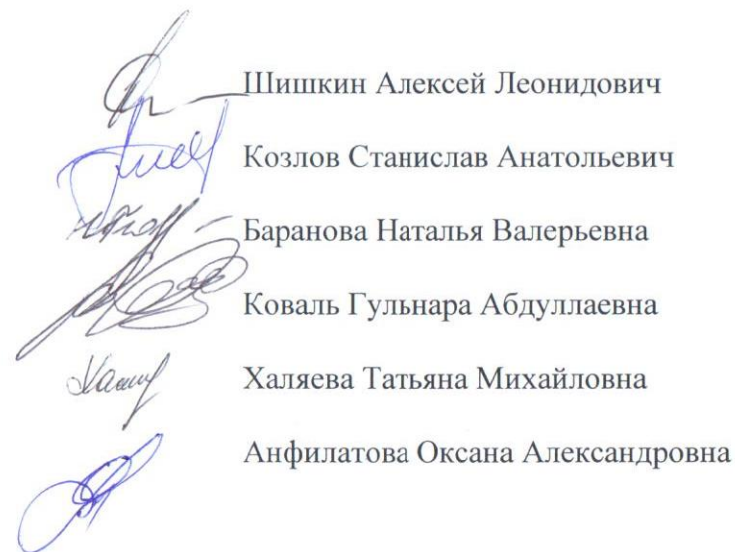 Шишкин Алексей Леонидович
Козлов Станислав Анатольевич
Баранова Наталья Валерьевна
Коваль Гульнара Абдуллаевна
Халяева Татьяна Михайловна
Анфилатова Оксана Александровна